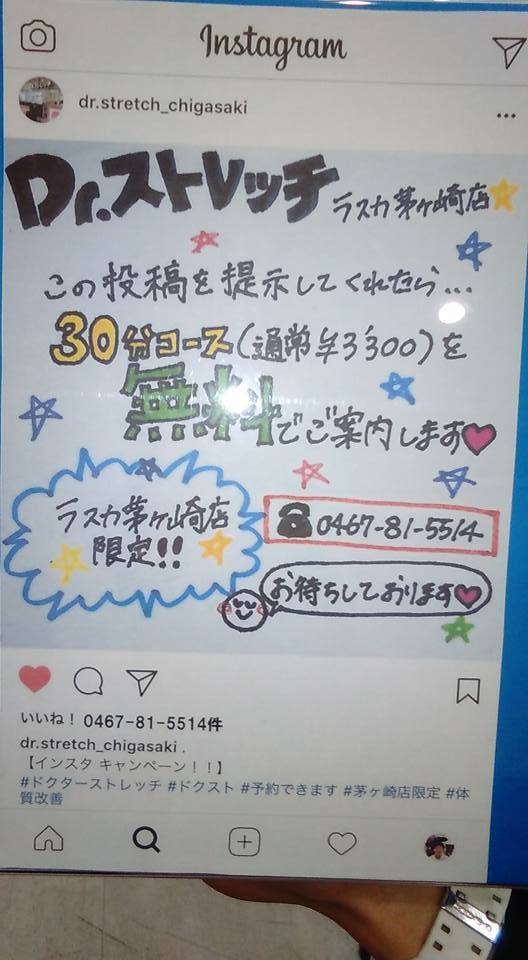 Instagram
dr.stretch_chigasaki
Dr.ストレッチ ラスカ茅ヶ崎店
この投稿を提示してくれたら...
30分コース(通常¥3,300)を
無料でご案内します
ラスカ茅ヶ崎店
限定!!
☎0467-81-5514
お待ちしております
いいね！0467-81-5514件
dr.stretch_chigasaki .
【インスタ キャンペーン！！】
#ドクターストレッチ #ドクスト #予約できます #茅ヶ崎店限定 #体
質改善